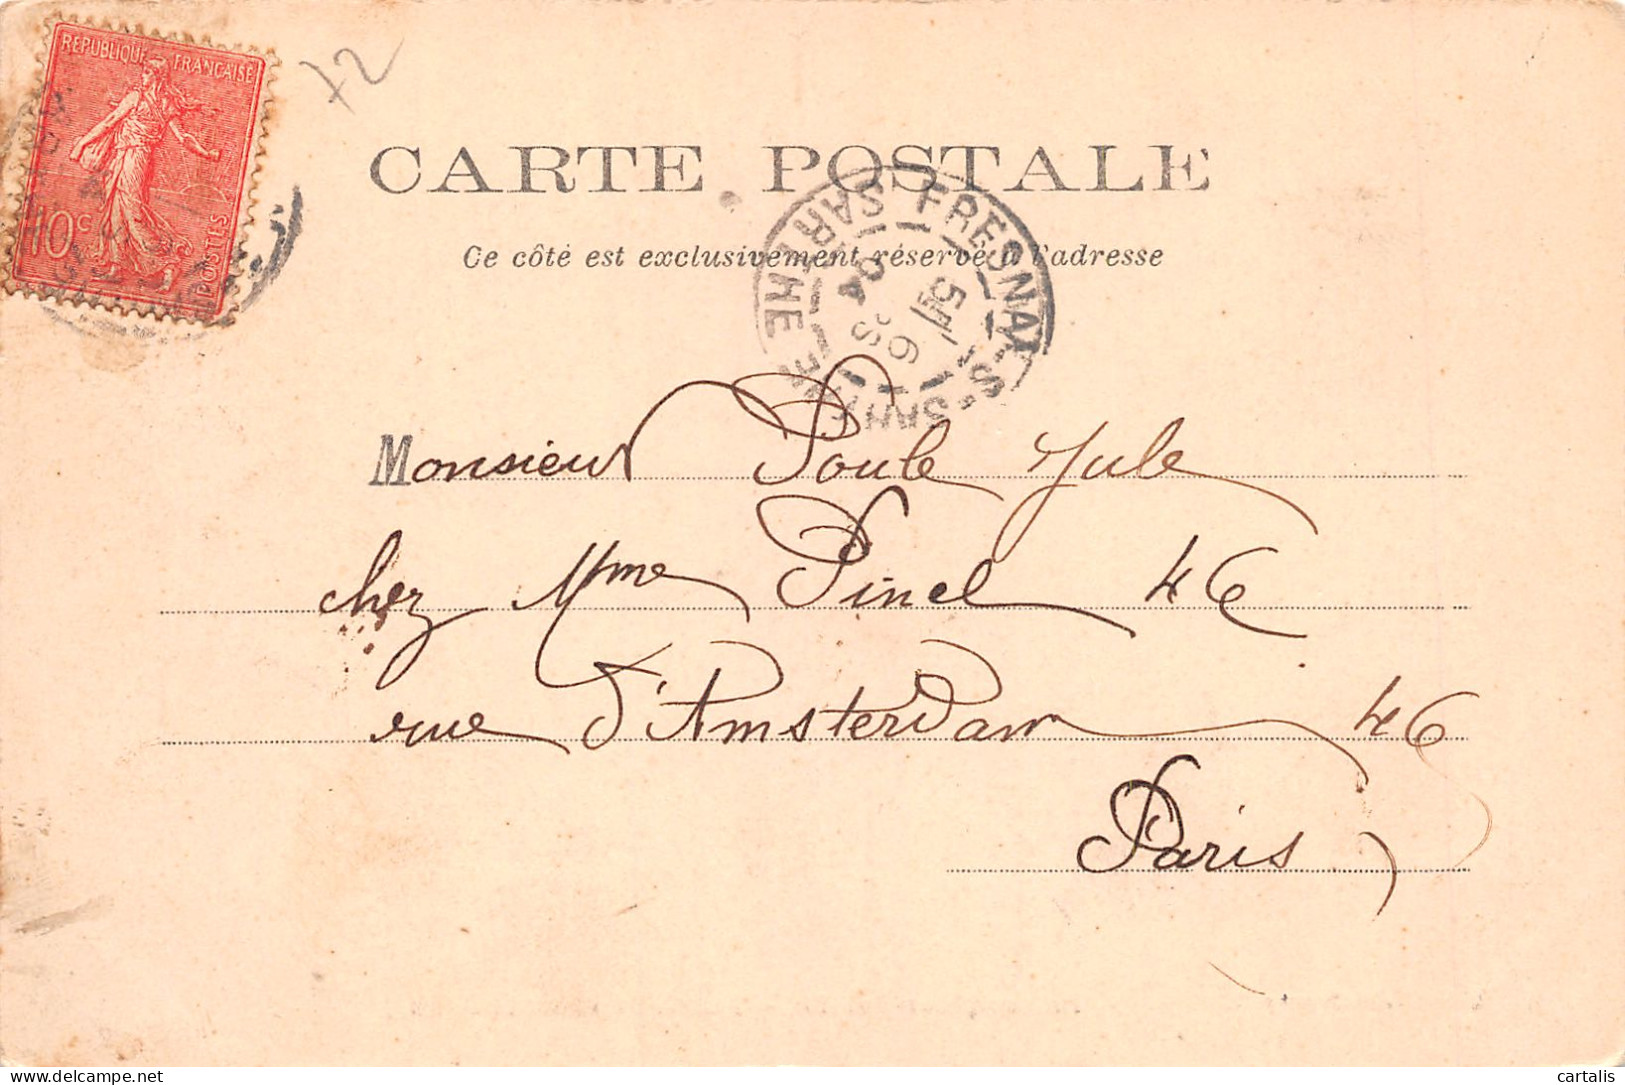 REPUBLIQUE FRANÇAISE
10c POSTES
72
CARTE POSTALE
FRESNAY-S-SARTHE
SARTHE
5E / 6 -S 04
Ce côté est exclusivement réservé à l'adresse
Monsieur Poule Jule
chez Mme Pinel 46
rue d'Amsterdam 46
Paris
cartalis